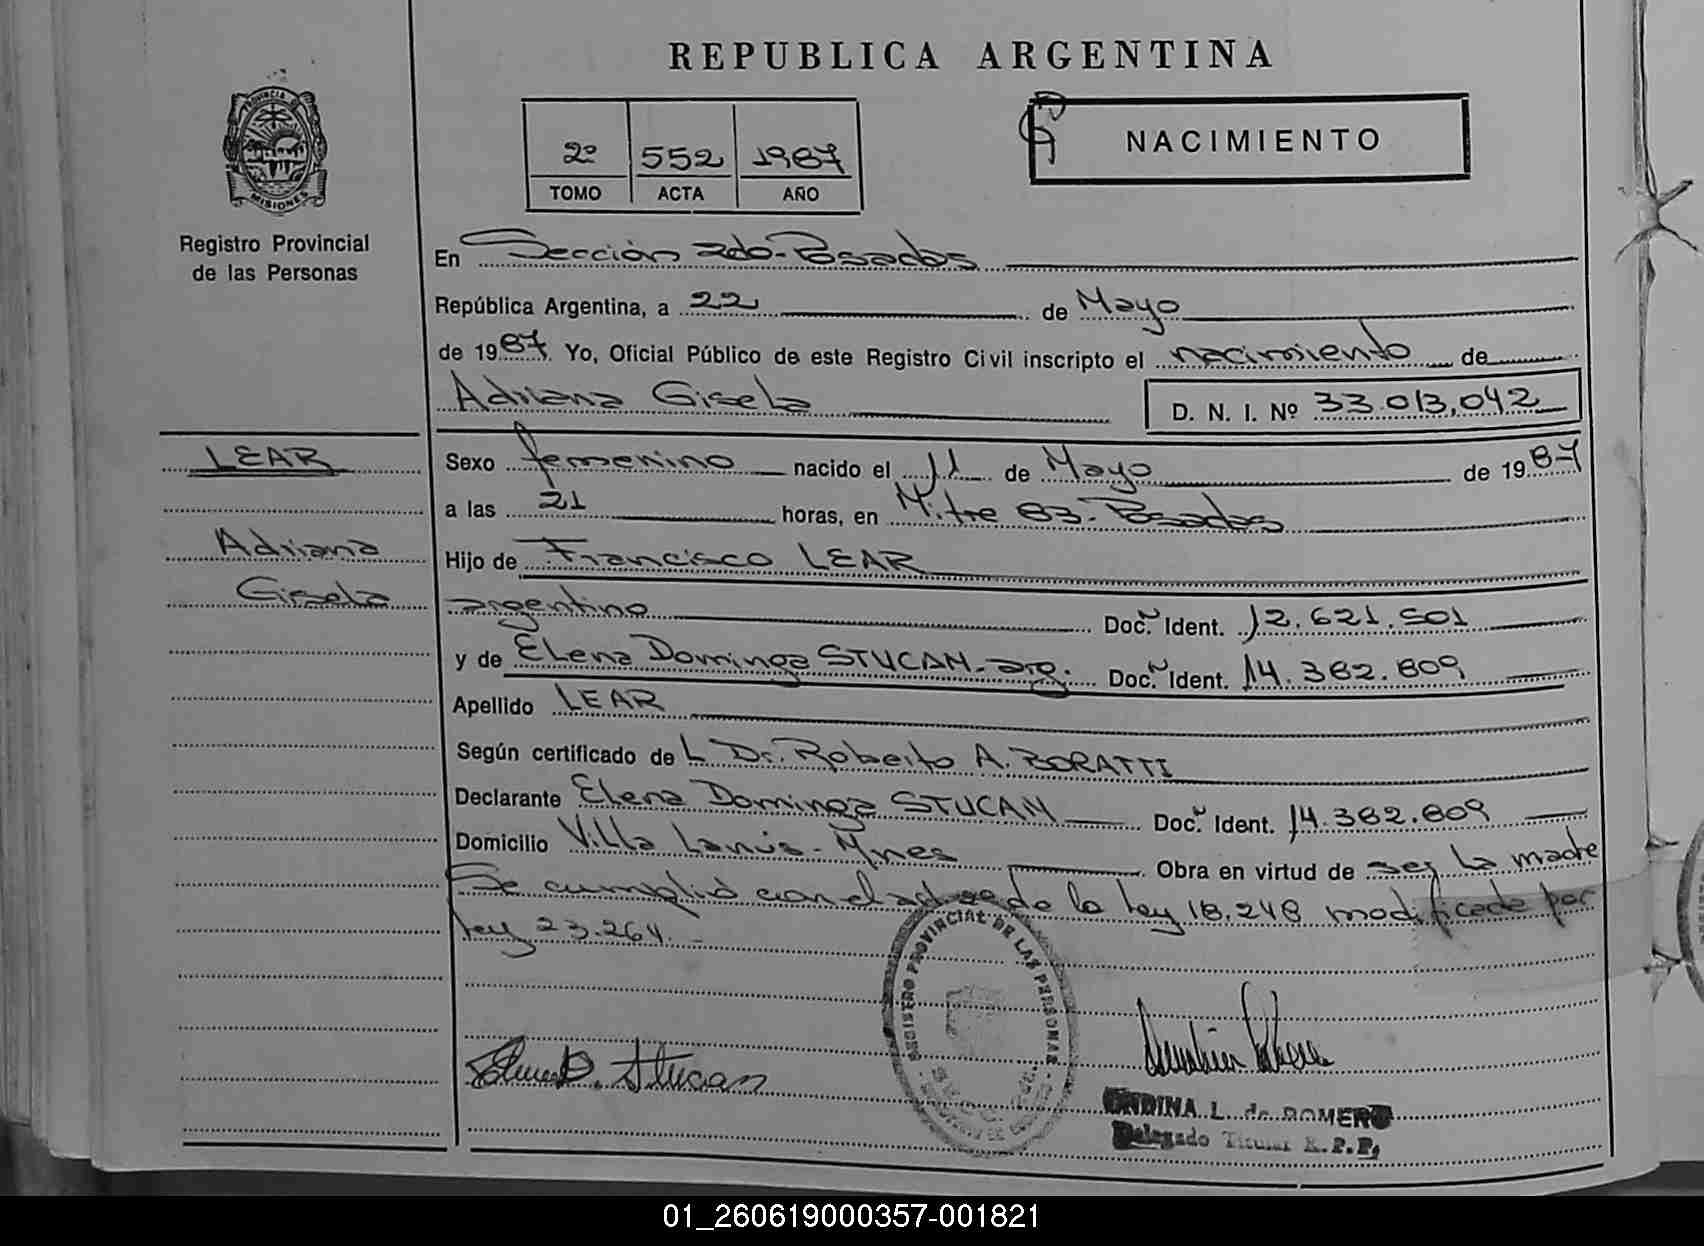 REPUBLICA ARGENTINA
PROVINCIA DE
MISIONES
Registro Provincial
de las Personas
2º 552 1987
TOMO ACTA AÑO
NACIMIENTO
En Sección 2do-Posadas
República Argentina, a 22 de Mayo
de 1987 Yo, Oficial Público de este Registro Civil inscripto el nacimiento de
Adriana Gisela
D. N. I. Nº 33.013,042
LEAR
Adriana
Gisela
Sexo femenino nacido el 11 de Mayo de 1987
a las 21 horas, en Mitre 83-Posadas
Hijo de Francisco LEAR
argentino Doc. Ident. 12.621.501
y de Elena Dominga STUCAN-arg. Doc. Ident. 14.382.809
Apellido LEAR
Según certificado de L Dr. Roberto A. BORATTI
Declarante Elena Dominga STUCAN Doc. Ident. 14.382.809
Domicilio Villa Lanús-Mnes Obra en virtud de ser la madre
Se cumplió con el de la ley 18.248 modificada por
ley 23.264.-
REGISTRO PROVINCIAL DE LAS PERSONAS
Elena D. Stucan
ONDINA L. de ROMERO
Delegado Titular R.P.P.
01_260619000357-001821